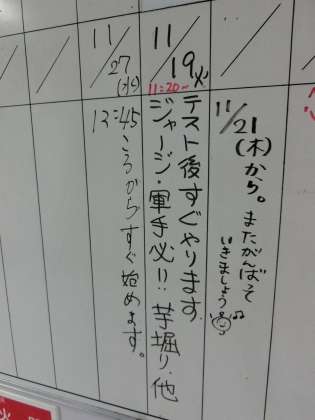 11/21
(木)から。またがんばって
いきましょう
11/19火
11:20〜
テスト後すぐやります
ジャージ・軍手必!! 芋掘り・他
11/27
(水)
13:45ころからすぐ始めます。